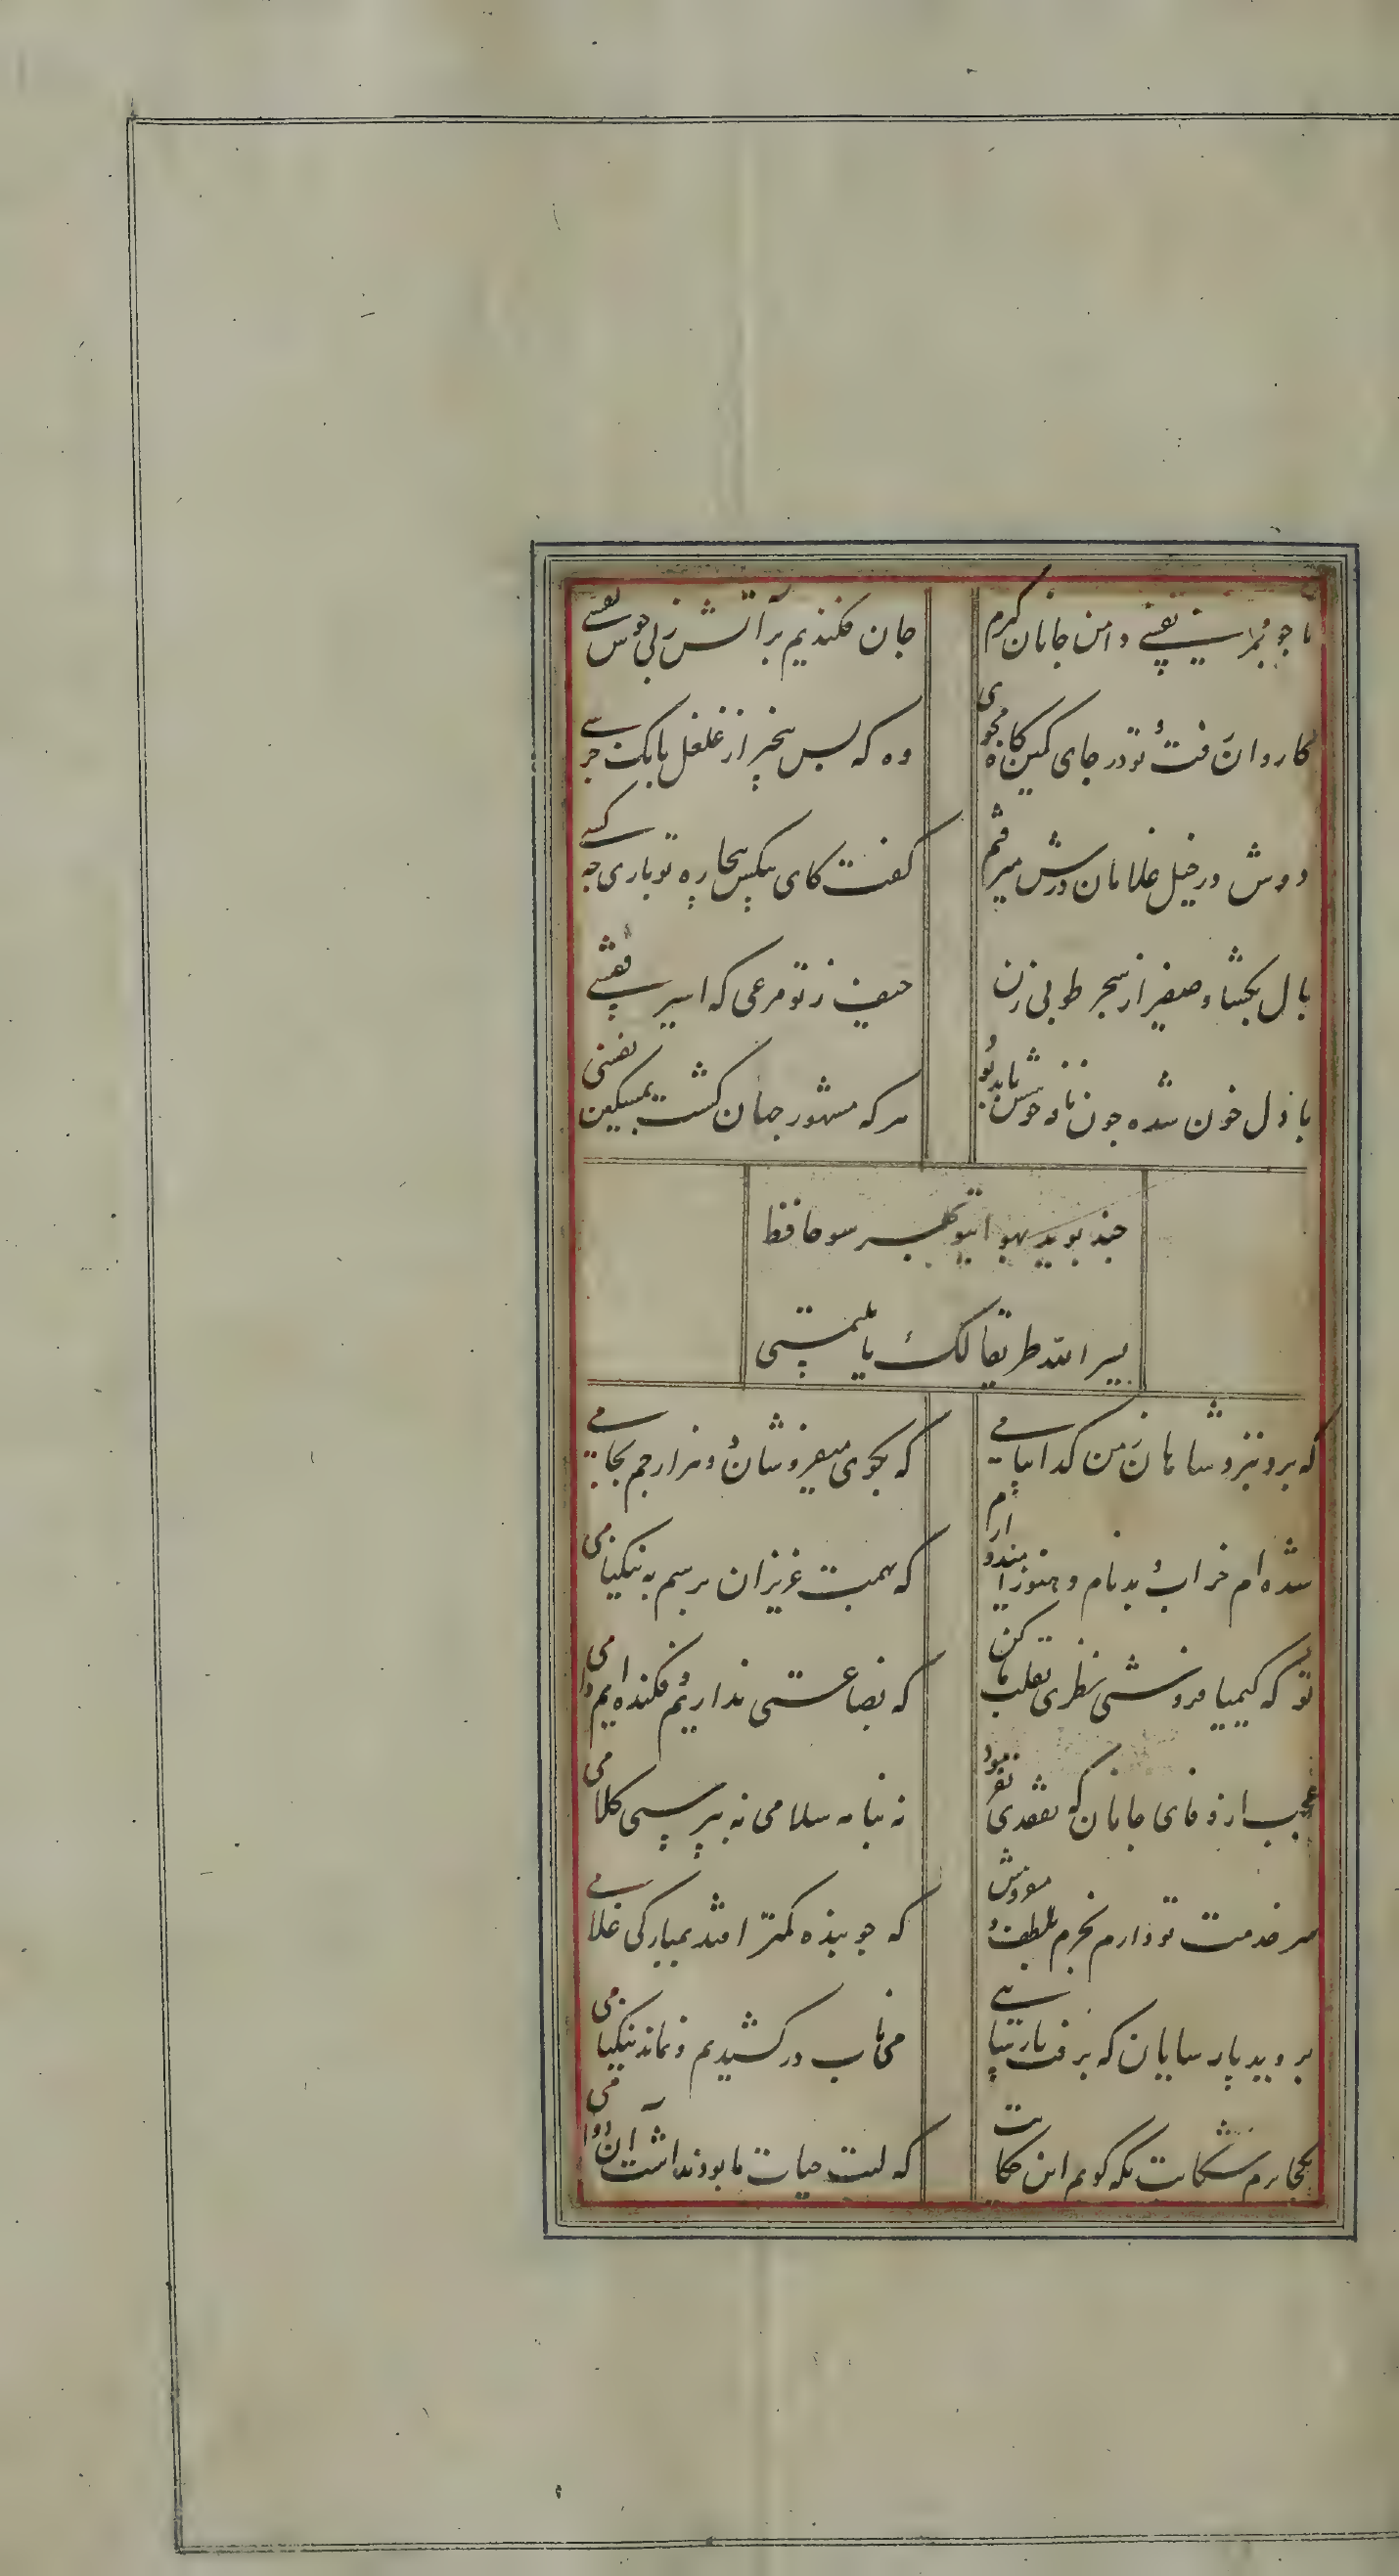 تا چو مجمر نفسی دامن جانان گیرم
جان فکندیم بر آتش ز پی خوش نفسی
کاروان رفت و تو در جای کمین گاه بخوی
وه که بس بیخبر از غلغل بانگ جرسی
دوش در خیل غلامان درش میرفتم
گفت کای بیکس بیچاره تو باری چه کسی
بال بگشا و صفیر از شجر طوبی زن
حیف ز تو مرغی که اسیر قفسی
با دل خون شده چون نافه خوشش باید بود
هر که مشهور جهان گشت بمشکین نفسی
چند بوید بهوای تو بهر سو حافظ
یسر الله طریقا لک یا ملتمسی
که برد بنزد شاهان ز من گدا پیامی
که بکوی میفروشان دو هزار جم بجامی
شده ام خراب و بدنام و هنوز امیدوارم
که بهمت عزیزان برسم به نیکنامی
تو که کیمیا فروشی نظری بقلب ما کن
که بضاعتی نداریم و فکنده ایم دامی
عجب از وفای جانان که تفقدی نفرمود
نه بنامه سلامی نه بپرسشی کلامی
سر خدمت تو دارم بخرم بلطف و مفروش
که چو بنده کمتر افتد بمبارکی غلامی
بروید پارسایان که برفت پارسایی
می ناب در کشیدیم و نماند نیکنامی
بکجا برم شکایت بکه گویم این حکایت
که لبت حیات ما بود و نداشت آن دوامی